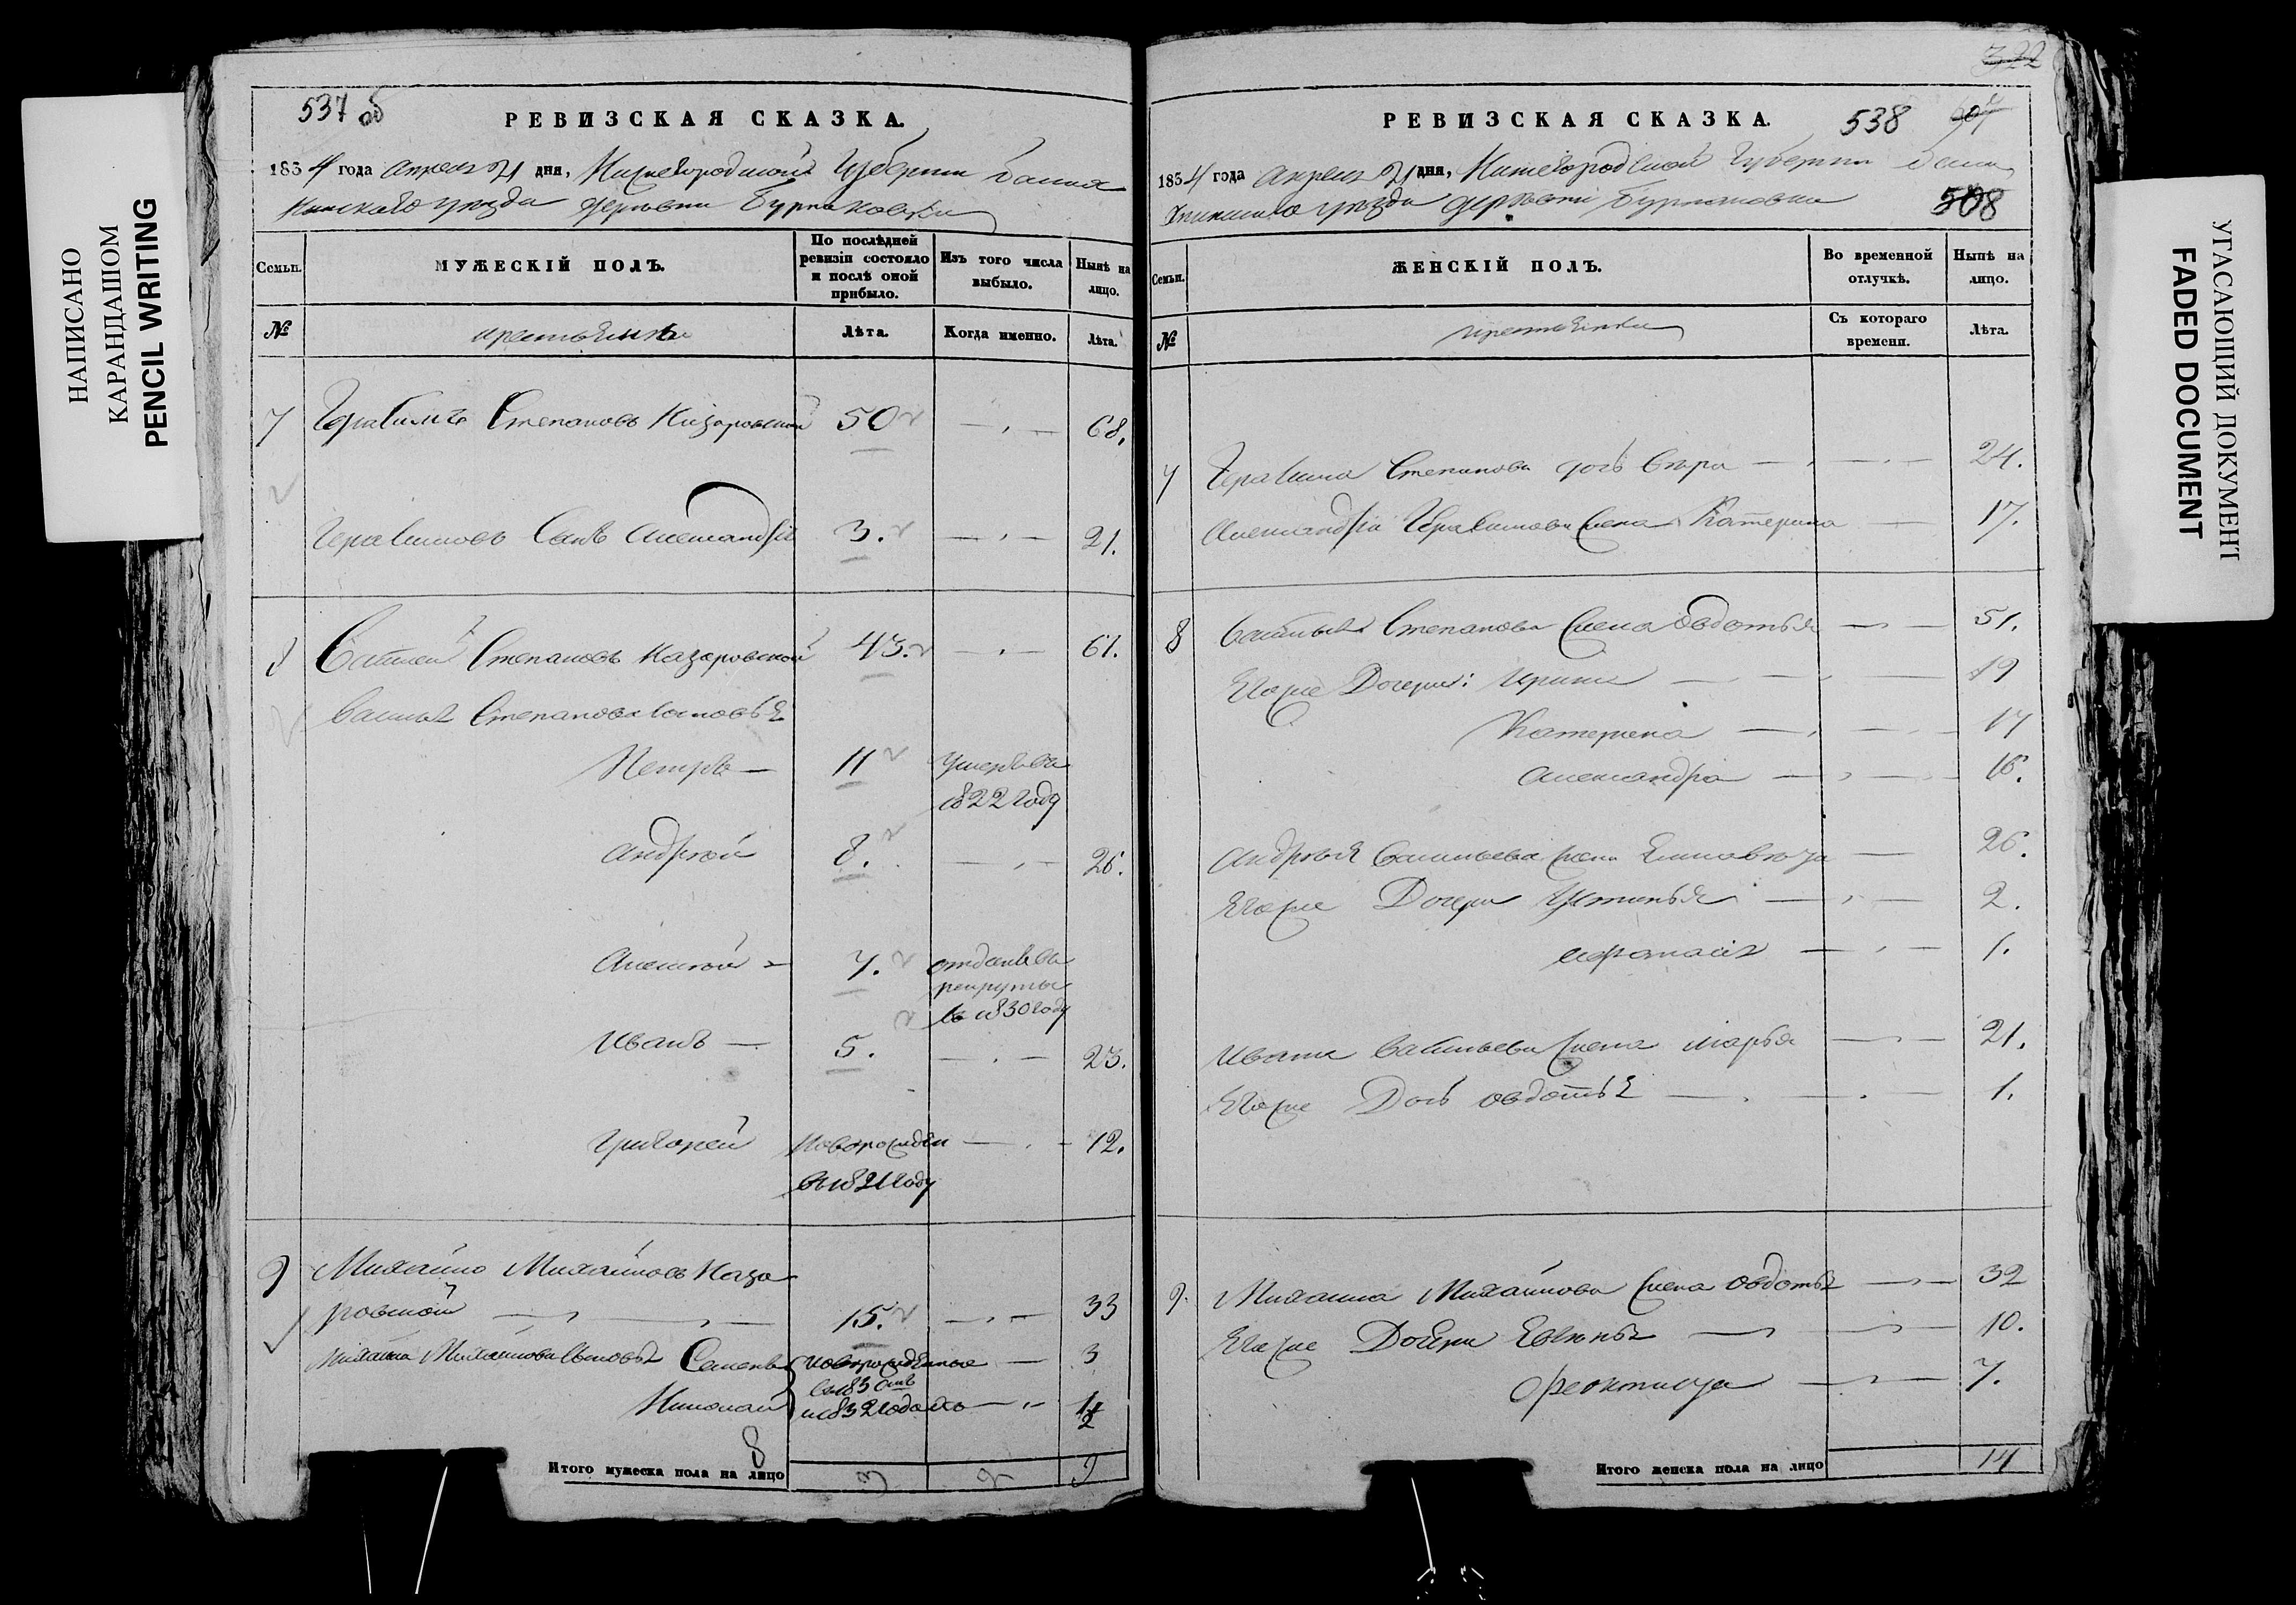 НАПИСАНО
КАРАНДАШОМ
PENCIL WRITING
537 об
РЕВИЗСКАЯ СКАЗКА.
1834 года апреля 21 дня, Нижегородской Губернии
уезда деревни Бурнаковки
Семьи.
МУЖЕСКІЙ ПОЛЪ.
По послѣдней ревизіи состояло и послѣ оной прибыло.
Изъ того числа выбыло.
Нынѣ на лицо.
№
крестьяне
Лѣта.
Когда именно.
Лѣта.
7 Герасимъ Степановъ 50 68.
Герасимовъ сынъ Александръ 3. 21.
8 Василей Степановъ Назаровской 43. 61.
Василья Степанова сыновья
Петръ — 11 умеръ въ
1822 году
Андрей 8. 26.
Алексей — 7. отданъ въ
рекруты
въ 1830 году
Иванъ — 5. 23.
Григорей новорожден 12.
въ 1821 году
9 Михайло Михайловъ Наза
ровской 15. 33
Михайла Михайлова сыновья Семенъ новорожденные 3
въ 183
Николай и 1832 годахъ
8
Итого мужеска пола на лицо 9
322
РЕВИЗСКАЯ СКАЗКА.
538
508
1834 года апреля 21 дня, Нижегородской Губернии
уезда деревни Бурнаковки
Семьи.
ЖЕНСКІЙ ПОЛЪ.
Во временной отлучкѣ.
Нынѣ на лицо.
№
крестьянки
Съ котораго времени.
Лѣта.
7 Герасима Степанова дочь Вѣра 24.
Александра Герасимова жена Катерина 17.
8 Василья Степанова жена Овдотья 51.
Егоже Дочери: Ирина 19
Катерина 17
Александра 16.
Андрея Васильева жена Елисавета 26.
Егоже Дочери Устинья 2.
1.
Ивана Васильева жена Марья 21.
Егоже Дочь Овдотья 1.
9. Михаила Михайлова жена Овдотья 32
Егоже Дочери 10.
Феоктиста 7.
Итого женска пола на лицо 14
УГАСАЮЩИЙ ДОКУМЕНТ
FADED DOCUMENT